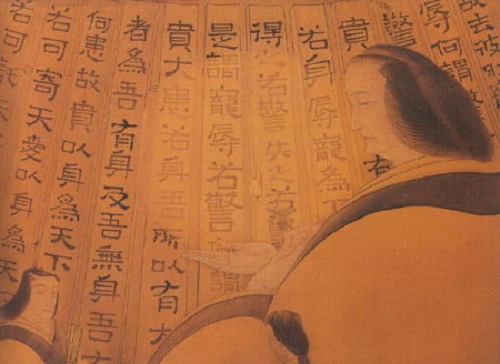 故去彼
辱何謂
貴
有
若身辱寵若
得若驚失之若驚
是謂寵辱若驚何謂
貴大患若身吾所以有大
者為吾有身及吾無身吾
何患故貴以身為天下
若可寄天愛以身為天
若可天